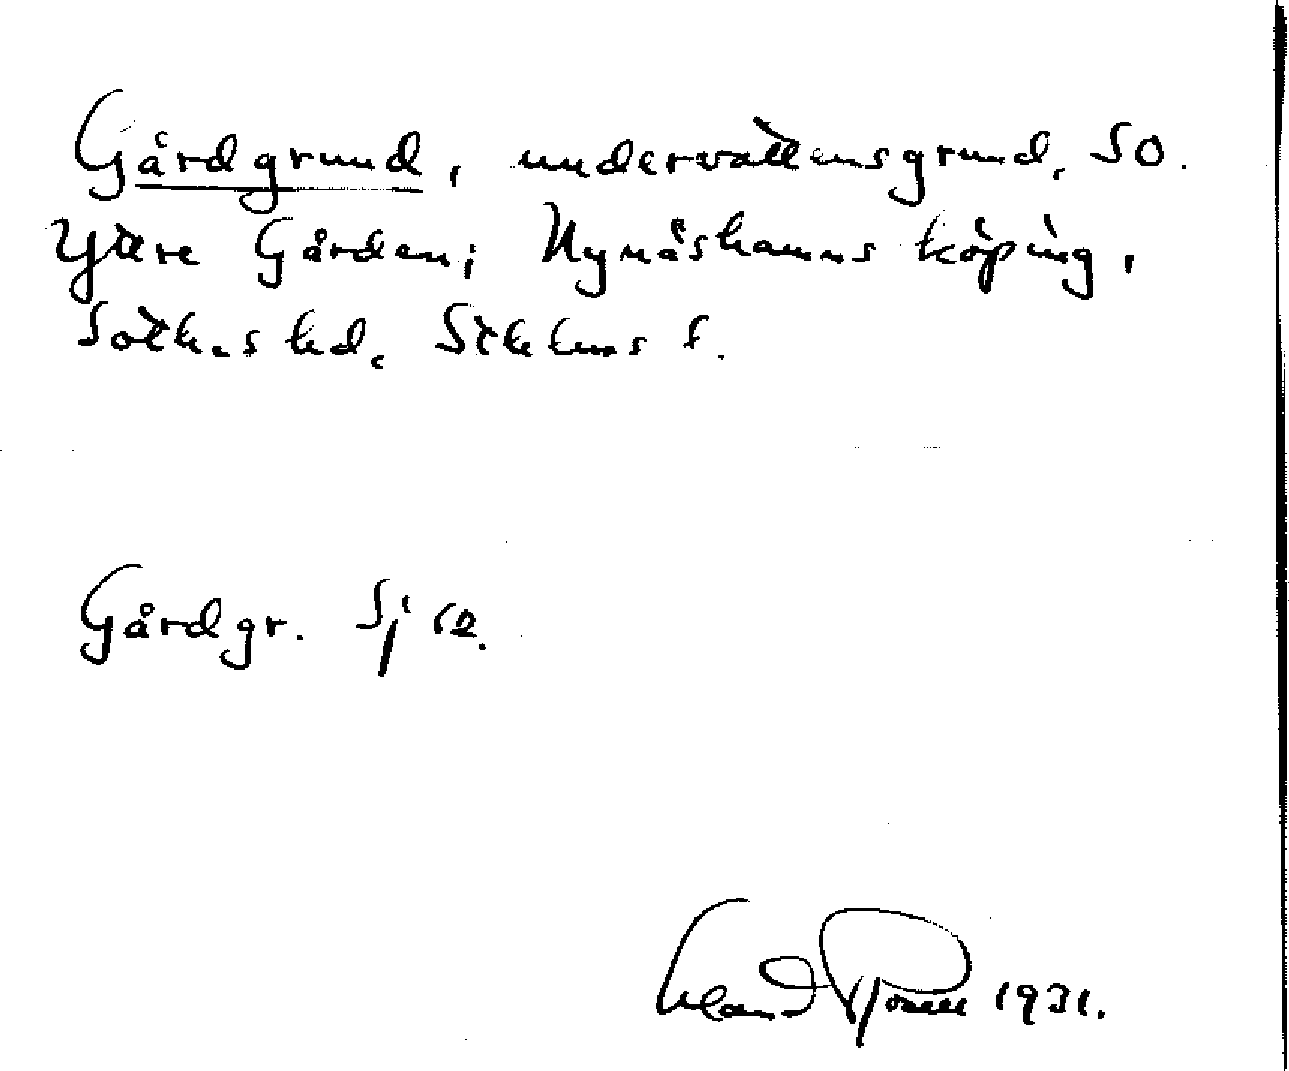 Gårdgrund, undervattensgrund, SO.
Yttre Gården; Nynäshamns köping,
Soth.s hd. Sthlms l.
Gårdgr. Sj 12.
1931.